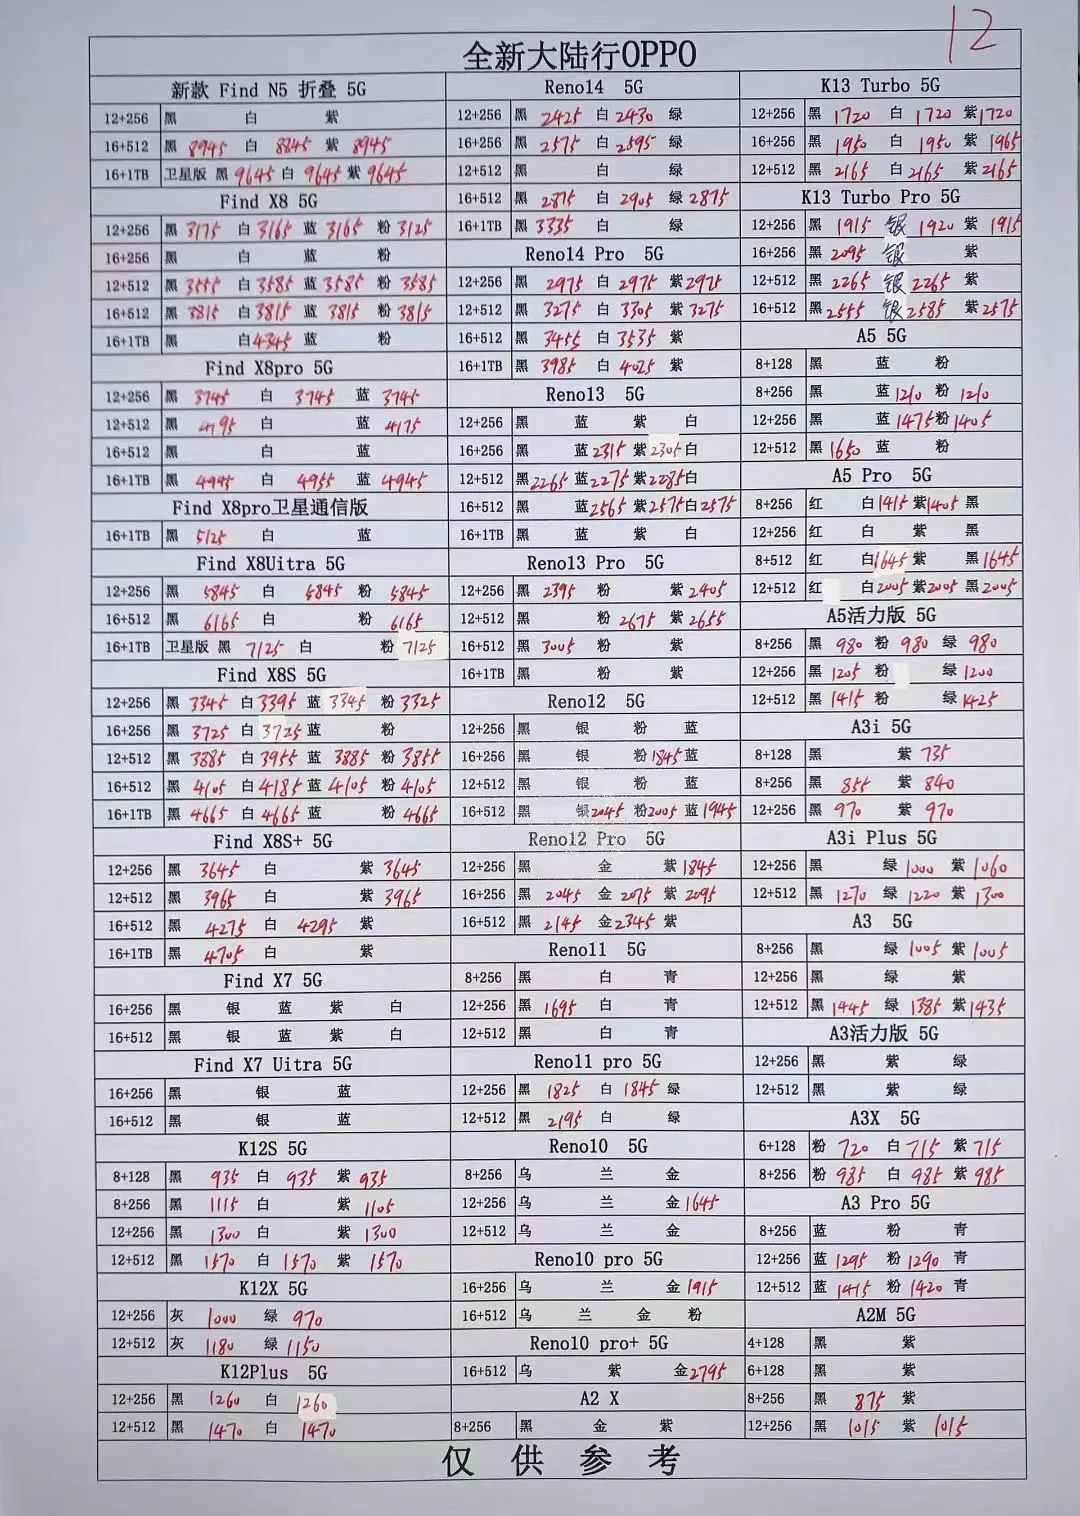 12
全新大陆行OPPO
新款 Find N5 折叠 5G
12+256 黑 白 紫
16+512 黑 8945 白 8845 紫 8945
16+1TB 卫星版 黑 9645 白 9645 紫 9645
Find X8 5G
12+256 黑 3175 白 3165 蓝 3165 粉 3125
16+256 黑 白 蓝 粉
12+512 黑 3555 白 3585 蓝 3585 粉 3585
16+512 黑 3815 白 3815 蓝 3815 粉 3815
16+1TB 黑 白 4345 蓝 粉
Find X8pro 5G
12+256 黑 3745 白 3745 蓝 3745
12+512 黑 4195 白 蓝 4175
16+512 黑 白 蓝
16+1TB 黑 4945 白 4955 蓝 4945
Find X8pro卫星通信版
16+1TB 黑 5125 白 蓝
Find X8Uitra 5G
12+256 黑 5845 白 5845 粉 5845
16+512 黑 6165 白 粉 6165
16+1TB 卫星版 黑 7125 白 粉 7125
Find X8S 5G
12+256 黑 3345 白 3395 蓝 3345 粉 3325
16+256 黑 3725 白 3725 蓝 粉
12+512 黑 3885 白 3955 蓝 3885 粉 3855
16+512 黑 4105 白 4185 蓝 4105 粉 4105
16+1TB 黑 4665 白 4665 蓝 粉 4665
Find X8S+ 5G
12+256 黑 3645 白 紫 3645
12+512 黑 3965 白 紫 3965
16+512 黑 4275 白 4295 紫
16+1TB 黑 4705 白 紫
Find X7 5G
16+256 黑 银 蓝 紫 白
16+512 黑 银 蓝 紫 白
Find X7 Uitra 5G
16+256 黑 银 蓝
16+512 黑 银 蓝
K12S 5G
8+128 黑 935 白 935 紫 935
8+256 黑 1115 白 紫 1105
12+256 黑 1300 白 紫 1300
12+512 黑 1570 白 1570 紫 1570
K12X 5G
12+256 灰 1000 绿 970
12+512 灰 1180 绿 1150
K12Plus 5G
12+256 黑 1260 白 1260
12+512 黑 1470 白 1470
Reno14 5G
12+256 黑 2425 白 2430 绿
16+256 黑 2575 白 2595 绿
12+512 黑 白 绿
16+512 黑 2875 白 2905 绿 2875
16+1TB 黑 3335 白 绿
Reno14 Pro 5G
12+256 黑 2975 白 2975 紫 2975
12+512 黑 3275 白 3305 紫 3275
16+512 黑 3455 白 3535 紫
16+1TB 黑 3985 白 4025 紫
Reno13 5G
12+256 黑 蓝 紫 白
16+256 黑 蓝 2315 紫 2305 白
12+512 黑 2265 蓝 2275 紫 2285 白
16+512 黑 蓝 2565 紫 2575 白 2575
16+1TB 黑 蓝 紫 白
Reno13 Pro 5G
12+256 黑 2395 粉 紫 2405
12+512 黑 粉 2675 紫 2655
16+512 黑 3005 粉 紫
16+1TB 黑 粉 紫
Reno12 5G
12+256 黑 银 粉 蓝
16+256 黑 银 粉 1845 蓝
12+512 黑 银 粉 蓝
16+512 黑 银 2045 粉 2005 蓝 1945
Reno12 Pro 5G
12+256 黑 金 紫 1845
16+256 黑 2045 金 2075 紫 2095
16+512 黑 2145 金 2345 紫
Reno11 5G
8+256 黑 白 青
12+256 黑 1695 白 青
12+512 黑 白 青
Reno11 pro 5G
12+256 黑 1825 白 1845 绿
12+512 黑 2195 白 绿
Reno10 5G
8+256 乌 兰 金
12+256 乌 兰 金 1645
12+512 乌 兰 金
Reno10 pro 5G
16+256 乌 兰 金 1915
16+512 乌 兰 金 粉
Reno10 pro+ 5G
16+512 乌 紫 金 2795
A2 X
8+256 黑 金 紫
K13 Turbo 5G
12+256 黑 1720 白 1720 紫 1720
16+256 黑 1950 白 1950 紫 1965
12+512 黑 2165 白 2165 紫 2165
K13 Turbo Pro 5G
12+256 黑 1915 银 1920 紫 1915
16+256 黑 2095 银 紫
12+512 黑 2265 银 2265 紫
16+512 黑 2555 银 2585 紫 2575
A5 5G
8+128 黑 蓝 粉
8+256 黑 蓝 1210 粉 1210
12+256 黑 蓝 1475 粉 1405
12+512 黑 1650 蓝 粉
A5 Pro 5G
8+256 红 白 1415 紫 1405 黑
12+256 红 白 紫 黑
8+512 红 白 1645 紫 黑 1645
12+512 红 白 2005 紫 2005 黑 2005
A5活力版 5G
8+256 黑 980 粉 980 绿 980
12+256 黑 1205 粉 绿 1200
12+512 黑 1415 粉 绿 1425
A3i 5G
8+128 黑 紫 735
8+256 黑 855 紫 840
12+256 黑 970 紫 970
A3i Plus 5G
12+256 黑 绿 1000 紫 1060
12+512 黑 1270 绿 1220 紫 1300
A3 5G
8+256 黑 绿 1005 紫 1005
12+256 黑 绿 紫
12+512 黑 1445 绿 1385 紫 1435
A3活力版 5G
12+256 黑 紫 绿
12+512 黑 紫 绿
A3X 5G
6+128 粉 720 白 715 紫 715
8+256 粉 985 白 985 紫 985
A3 Pro 5G
8+256 蓝 粉 青
12+256 蓝 1295 粉 1290 青
12+512 蓝 1415 粉 1420 青
A2M 5G
4+128 黑 紫
6+128 黑 紫
8+256 黑 875 紫
12+256 黑 1015 紫 1015
仅供参考